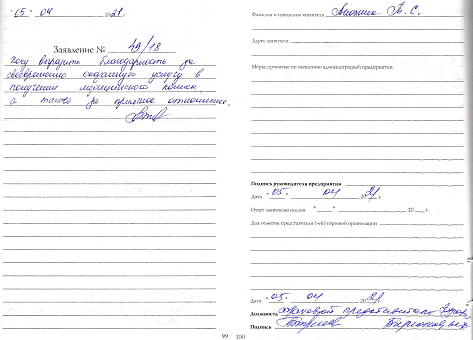 "05" 04 2021.
Заявление № 49/18
Хочу выразить благодарность за
своевременно оказанную услугу в
получении медицинского полиса,
а также за приятное отношение.
99
Фамилия и инициалы заявителя П. С.
Адрес заявителя
Меры, принятые по заявлению администрацией предприятия:
Подпись руководителя предприятия
Дата "05" 04 2021
Ответ заявителю послан " " 20 г.
Для отметок представителя (-ей) торговой организации
Дата "05" 04 2021
Должность страховой представитель
Подпись
100